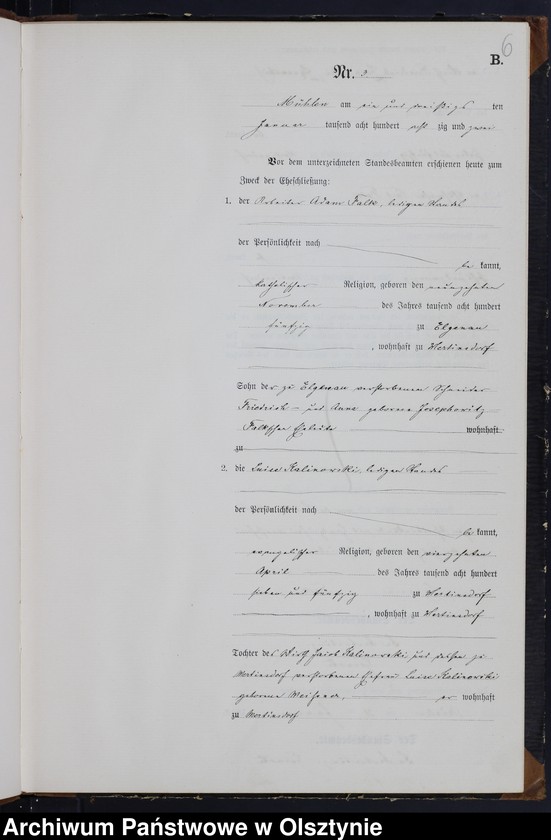 6
B.
Nr. 3
Mühlen am ein und dreißigs ten
Januar tausend acht hundert acht zig und zwei
Vor dem unterzeichneten Standesbeamten erschienen heute zum
Zweck der Eheschließung:
1. der Arbeiter Adam Falk, ledigen Standes
der Persönlichkeit nach
be kannt,
katholischer Religion, geboren den neunzehnten
November des Jahres tausend acht hundert
fünfzig zu Elgenau
, wohnhaft zu
Sohn der zu Elgenau verstorbenen Schneider
Friedrich und Anna geborene
Falkschen Eheleute wohnhaft
zu
2. die Luise Kalinowski, ledigen Standes
der Persönlichkeit nach
be kannt,
evangelischer Religion, geboren den vierzehnten
April des Jahres tausend acht hundert
sieben und fünfzig zu
, wohnhaft zu
Tochter des Wirth Jacob Kalinowski und dessen zu
verstorbenen Ehefrau Luise Kalinowski
geborene er wohnhaft
zu
Archiwum Państwowe w Olsztynie